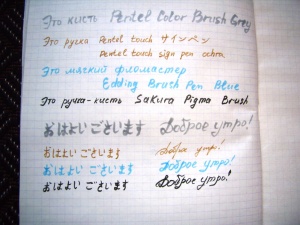 Это кисть Pentel Color Brush Grey
Это ручка Pentel touch サインペン
Pentel touch sign pen ochra
Это мягкий фломастер
Edding Brush Pen Blue
Это ручка-кисть Sakura Pigma Brush
おはよい ございます Доброе утро!
おはよい ございます Доброе утро!
おはよい ございます Доброе утро!
おはよい ございます Доброе утро!